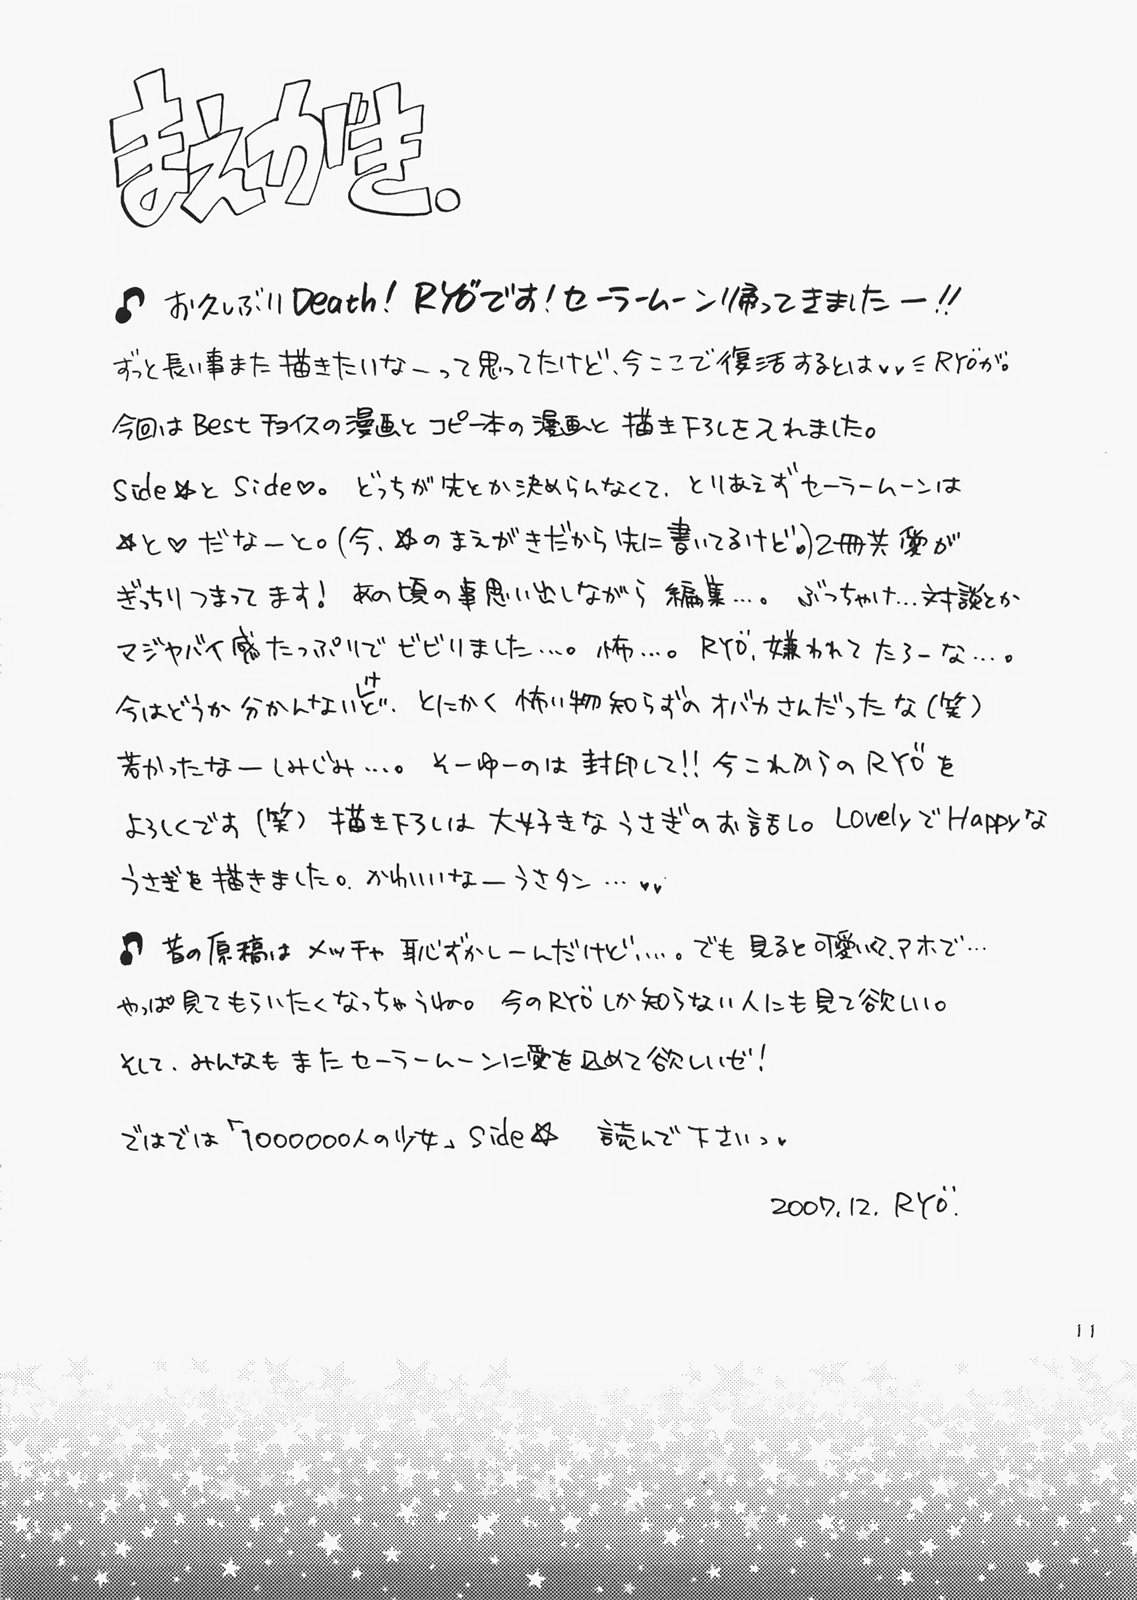 まえがき.
♪ お久しぶりDeath! RYÖです!セーラームーン帰ってきましたー!!
ずっと長い事また描きたいなーって思ってたけど、今ここで復活するとは♥♥ミRYÖが。
今回はBestチョイスの漫画とコピー本の漫画と描き下ろしを入れました。
Side☆とSide♡。どっちが先とか決めらんなくて、とりあえずセーラームーンは
☆と♡だなーと。(今、☆のまえがきだから先に書いてるけど。)2冊共愛が
ぎっちりつまってます!あの頃の事思い出しながら編集…。ぶっちゃけ…対談とか
マジヤバイ感たっぷりでビビりました…。怖…。RYÖ、嫌われてたろーな…。
今はどうか分かんないけど、とにかく怖い物知らずのオバカさんだったな(笑)
若かったなーしみじみ…。そーゆーのは封印して!!今これからのRYÖを
よろしくです(笑)描き下ろしは大好きなうさぎのお話し。LovelyでHappyな
うさぎを描きました。かわいいなーうさタン…♥♥
♪ 昔の原稿はメッチャ恥ずかしーんだけど…。でも見ると可愛いくて、アホで…
やっぱ見てもらいたくなっちゃうね。今のRYÖしか知らない人にも見て欲しい。
そして、みんなもまたセーラームーンに愛を込めて欲しいゼ!
ではでは「1000000人の少女」Side☆ 読んで下さいっ♥
2007.12. RYÖ.
11